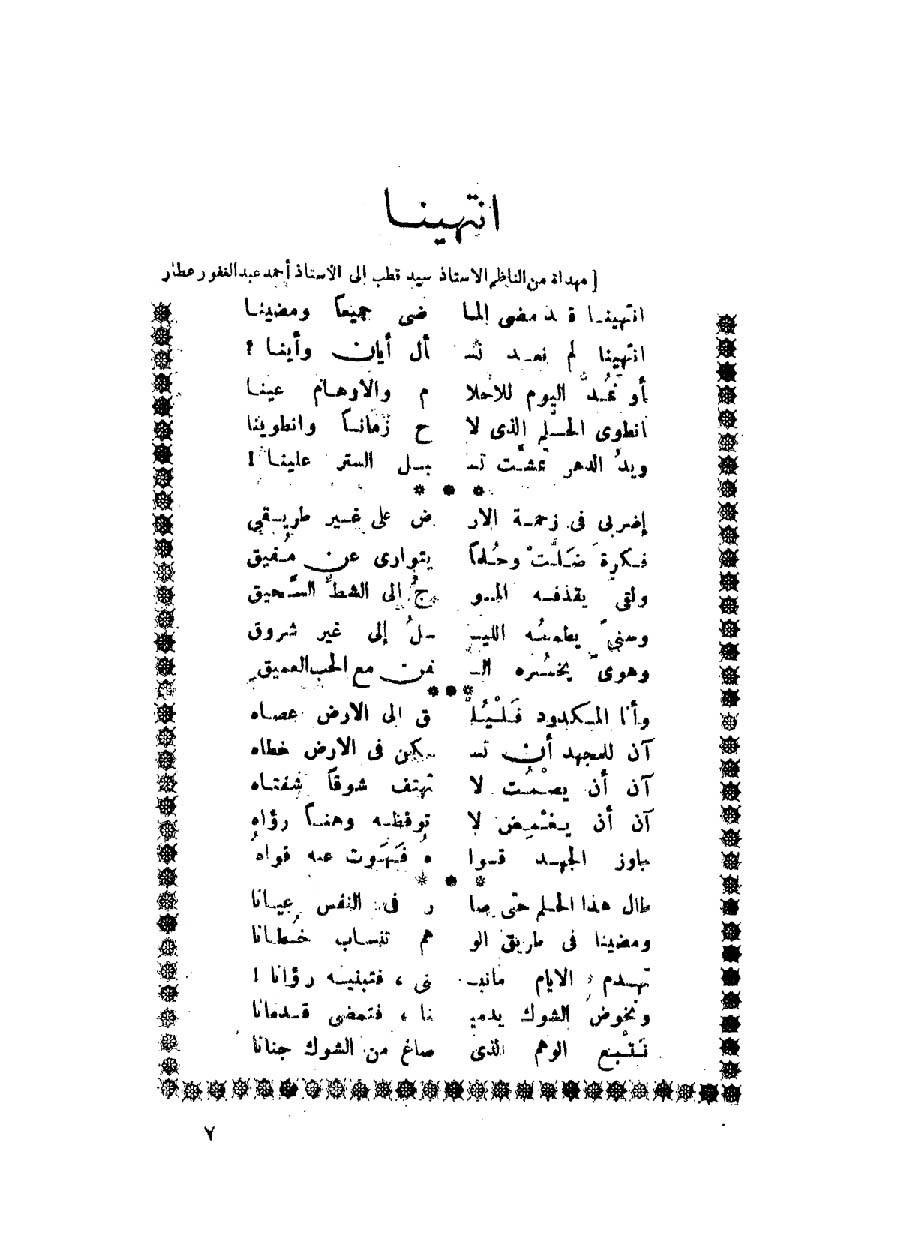 انتهينا
[ مهداة من الناظم الاستاذ سيد قطب إلى الاستاذ أحمد عبد الغفور عطار
انتهينا قد مضى الما ضى جميعاً ومضينا
انتهينا لم نعد نسـ أل أيان وأينا ؟
أو نَمُدَّ اليوم للأحلا م والاوهام عينا
انطوى الحلم الذى لا ح زماناً وانطوينا
ويدُ الدهر تمشَّت تسـ بل الستر علينا !
* * *
إضربى فى زحمة الار ض على غير طريقى
فكرةً ضلَّتْ وحُلماً يتوارى عن مُفيق
ولقىً يقذفه المو جُ إلى الشطِّ السَّحيق
ومنىً يطمسُه الليـ لُ إلى غير شروق
وهوىً يخسُره الـ من مع الحب العميق
* * *
وأنا المكدود فَلْيُلْـ ق الى الارض عصاه
آن للمجهد أن تسـ كن فى الارض خطاه
آن أن يصْمُت لا تهتف شوقاً شفتاه
آن أن يغْمِض لا توقظه وهناً رؤاه
جاوز الجهد قوا هُ فَهَوت عنه قواهُ
* * *
طال هذا الحلم حتى صا ر فى النفس عيانا
ومضينا فى طريق الو هم تنساب خُطانا
تهدم الايام مانبـ نى ، فتبنيه رؤانا !
ونخوض الشوك يدميـ نا ، فتمضى قدمانا
نَتْبع الوهم الذى صاغ من الشوك جنانا
٧